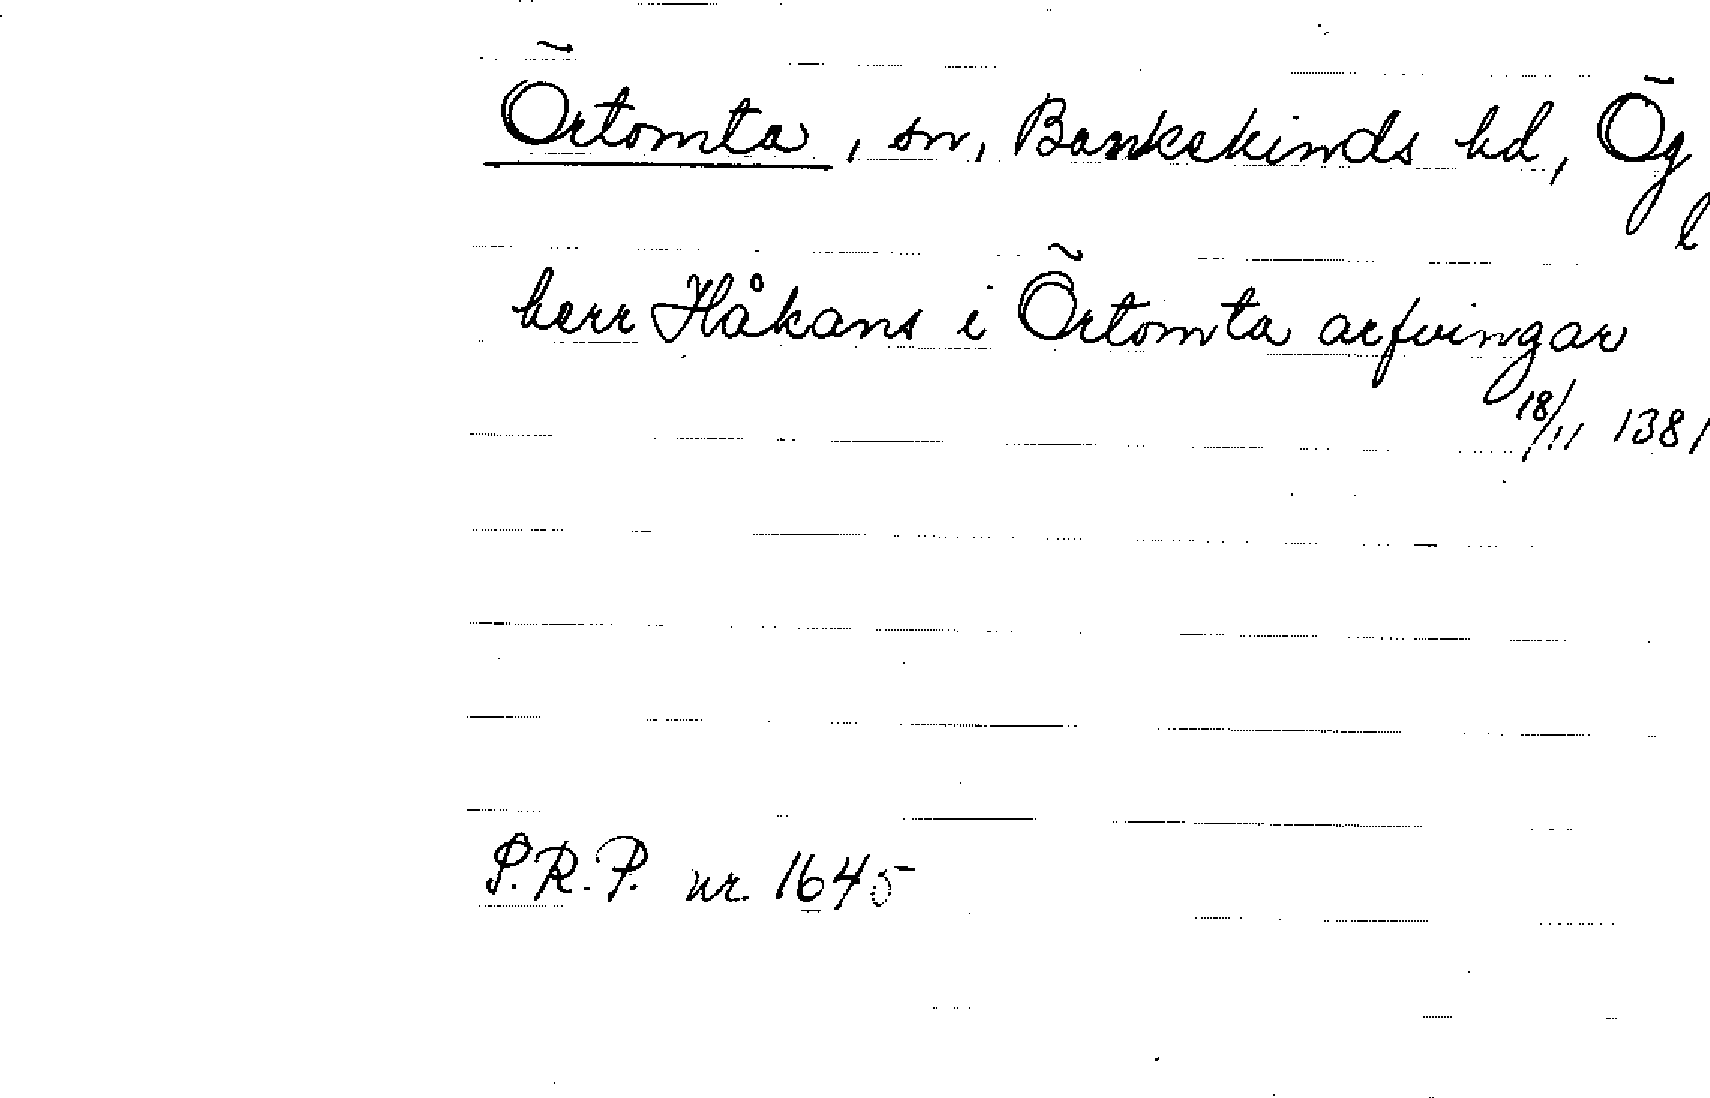 Örtomta, sn, Bankekinds hd, Ög
l
herr Håkans i Örtomta arfvingar
18/11 1381
S.R.P. nr. 1645